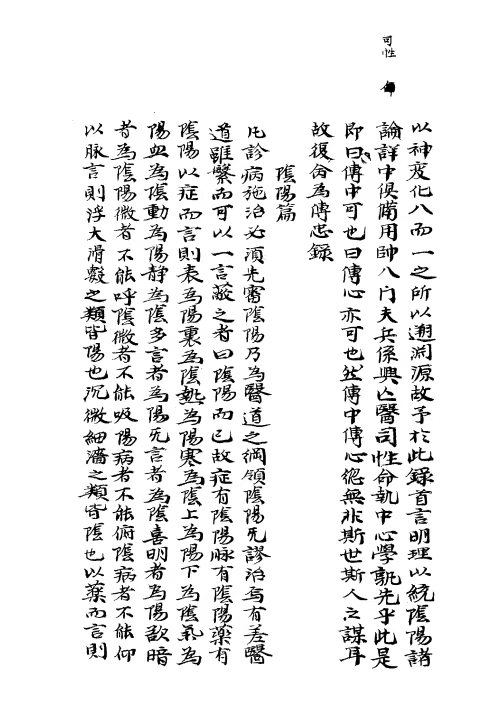 司性
以神变化八而一之所以遡渊源故予於此录首言明理以統陰陽諸
論詳中候備用帥八门夫兵係興亡醫司性命執中心學孰先乎此是
即曰傳中可也曰傳心亦可也然傳中傳心總無非斯世斯人之謀耳
故復命為傳忠録
陰陽篇
凡診病施治必須先審陰陽乃為醫道之綱領陰陽无謬治焉有差醫
道雖繁而可以一言蔽之者曰陰陽而已故症有陰陽脉有陰陽藥有
陰陽以症而言則表為陽裏為陰熱為陽寒為陰上為陽下為陰氣為
陽血為陰動為陽静為陰多言者為陽无言者為陰喜明者為陽欲暗
者為陰陽微者不能呼陰微者不能吸陽病者不能俯陰病者不能仰
以脉言則浮大滑數之類皆陽也沉微細濇之類皆陰也以藥而言則